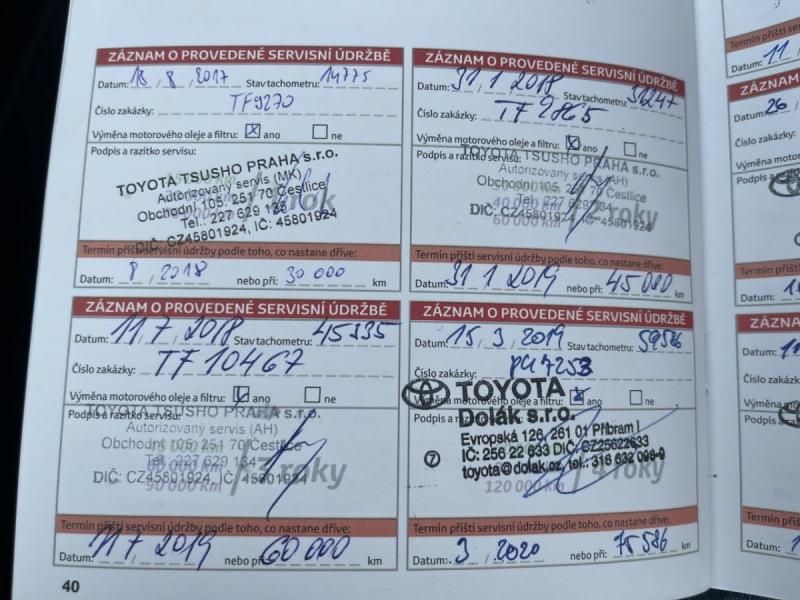 ZÁZNAM O PROVEDENÉ SERVISNÍ ÚDRŽBĚ
Datum: 18, 8, 2017 Stav tachometru: 14775
Číslo zakázky: TF9270
Výměna motorového oleje a filtru: ☒ ano ☐ ne
Podpis a razítko servisu:
TOYOTA TSUSHO PRAHA s.r.o.
Autorizovaný servis (MK)
Obchodní 105, 251 70 Čestlice
Tel.: 227 629
DIČ: CZ45801924, IČ: 45801924
Termín příští servisní údržby podle toho, co nastane dříve:
Datum: 8, 2018 nebo při: 30 000 km
ZÁZNAM O PROVEDENÉ SERVISNÍ ÚDRŽBĚ
Datum: 31 1 2018 Stav tachometru:
Číslo zakázky: TF 9865
Výměna motorového oleje a filtru: ☒ ano ☐ ne
Podpis a razítko servisu:
TOYOTA TSUSHO PRAHA s.r.o.
Autorizovaný servis (AH)
Obchodní 105, 251 70 Čestlice
Tel.: 227 629
DIČ: CZ45801924, IČ: 45801924
60 000 km / 2 roky
Termín příští servisní údržby podle toho, co nastane dříve:
Datum: 31 1 2019 nebo při: 45 000 km
ZÁZNAM O PROVEDENÉ SERVISNÍ ÚDRŽBĚ
Datum: 11 7 2018 Stav tachometru: 45335
Číslo zakázky: TF 10467
Výměna motorového oleje a filtru: ☒ ano ☐ ne
Podpis a razítko servisu:
TOYOTA TSUSHO PRAHA s.r.o.
Autorizovaný servis (AH)
Obchodní 105, 251 70 Čestlice
Tel.: 227 629
DIČ: CZ45801924, IČ: 45801924
90 000 km / 3 roky
Termín příští servisní údržby podle toho, co nastane dříve:
Datum: 11 7 2019 nebo při: 60 000 km
ZÁZNAM O PROVEDENÉ SERVISNÍ ÚDRŽBĚ
Datum: 15, 3, 2019 Stav tachometru: 59586
Číslo zakázky:
Výměna motorového oleje a filtru: ☒ ano ☐ ne
Podpis a razítko servisu:
TOYOTA
Dolák s.r.o.
Evropská 126, 261 01 Příbram I
IČ: 256 22 633 DIČ: CZ25622633
⑦ toyota@dolak.cz, tel.: 318 632 098-9
120 000 km / 4 roky
Termín příští servisní údržby podle toho, co nastane dříve:
Datum: 3, 2020 nebo při: 75 586 km
40